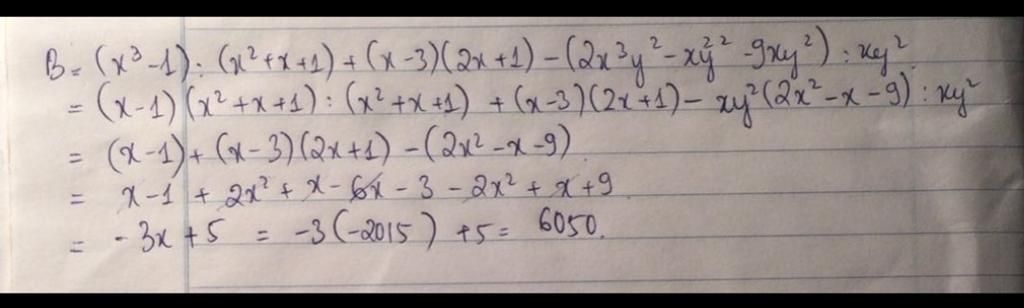 B = (x³ -1) : (x² + x + 1) + (x - 3)(2x + 1) - (2x³y² - xy² ² - 9xy²) : xy²
= (x - 1)(x² + x + 1) : (x² + x + 1) + (x - 3)(2x + 1) - xy²(2x² - x - 9) : xy²
= (x - 1) + (x - 3)(2x + 1) - (2x² - x - 9)
= x - 1 + 2x² + x - 6x - 3 - 2x² + x + 9
= - 3x + 5 = -3(-2015) + 5 = 6050.